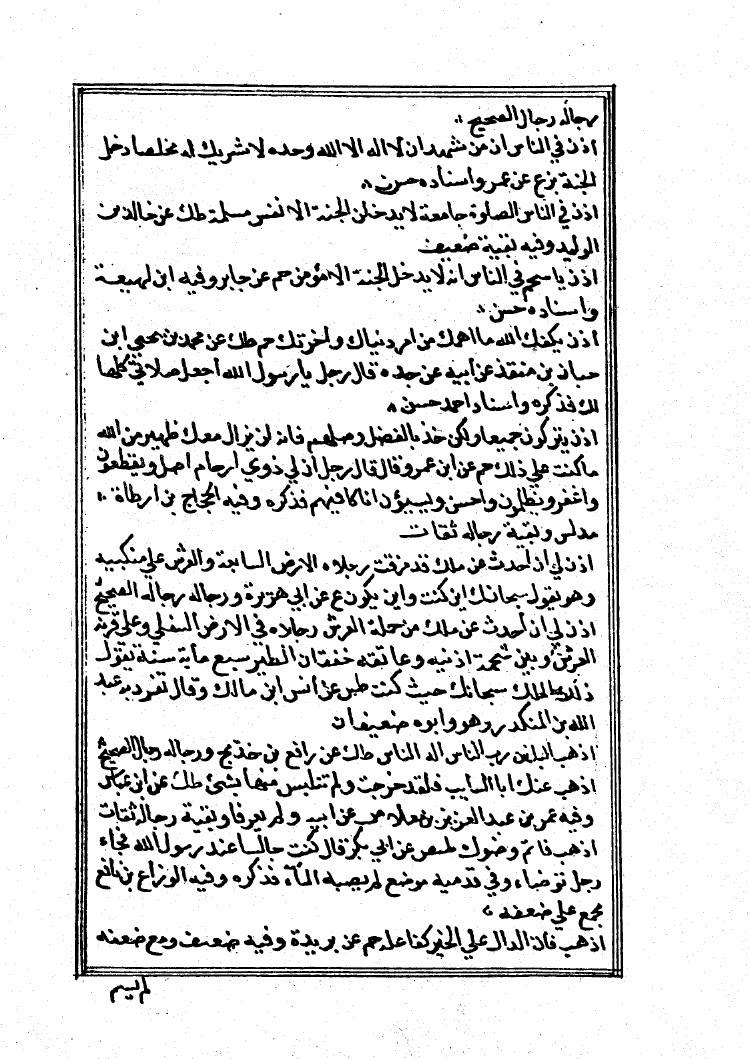 رجاله رجال الصحيح
اذن في الناس ان من شهد ان لا اله الا الله وحده لا شريك له مخلصا دخل
الجنة بزع عن عمر واسناده حسن
اذن في الناس الصلوة جامعة لا يدخلن الجنة الا نفس مسلمة طك عن خالد بن
الوليد وفيه بقية ضعيف
اذن يا سحيم في الناس انه لا يدخل الجنة الا مؤمن حم عن جابر وفيه ابن لهيعة
واسناده حسن
اذن يكفيك الله ما اهمك من امر دنياك وآخرتك حم طك عن محمد بن يحيى ابن
حبان بن منقذ عن أبيه عن جده قال رجل يا رسول الله أجعل صلاتي كلها
لك فذكره واسناد احمد حسن
اذن يتركون جميعا ولكن خذ بالفضل وصلهم فانه لن يزال معك ظهير من الله
ما كنت علي ذلك حم عن ابن عمرو قال قال رجل ان لي ذوي ارحام اصل ويقطعون
واغفر ويظلمون واحسن ويسيؤن افاكافيهم فذكره وفيه الحجاج بن ارطاة
مدلس وبقية رجاله ثقات
اذن لي ان أحدث عن ملك قد مرقت رجلاه الارض السابعة والعرش علي منكبيه
وهو يقول سبحانك اين كنت واين يكون ع عن ابي هريرة ورجاله رجاله الصحيح
اذن لي ان أحدث عن ملك من حملة العرش رجلاه في الارض السفلي وعلي قرنه
العرش وبين شحمة اذنيه وعاتقه خفقان الطير سبع مأية سنة يقول
ذلك الملك سبحانك حيث كنت طس عن أنس ابن مالك وقال تفرد به عبد
الله بن المنكدر وهو وابوه ضعيفان
اذهب الباس رب الناس اله الناس طك عن رافع بن خديج ورجاله رجال الصحيح
اذهب عنك ابا السايب فلقد خرجت ولم تتلبس منها بشئ طك عن ابن عباس
وفيه عمر بن عبد العزيز بن عن ابيه ولم يعرفا وبقية رجاله ثقات
اذهب فاتم وضوك طصس عن ابي بكر قال كنت جالسا عند رسول الله فجاء
رجل توضاء وفي قدميه موضع لم يصبه الماء فذكره وفيه الوزاع بن نافع
مجمع علي ضعفه
اذهب فان الدال علي الخير كفاعله حم عن بريدة وفيه ضعيف ومع ضعفه
لم يسم